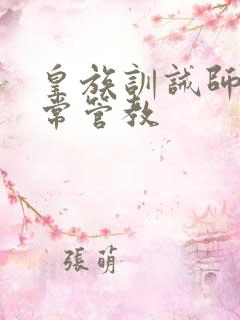 皇族訓誡師
常管教
張萌